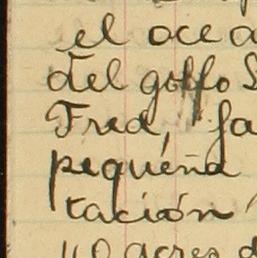 el ocea
del golfo S
Fred, fa
pequeña
tación
110 acres d